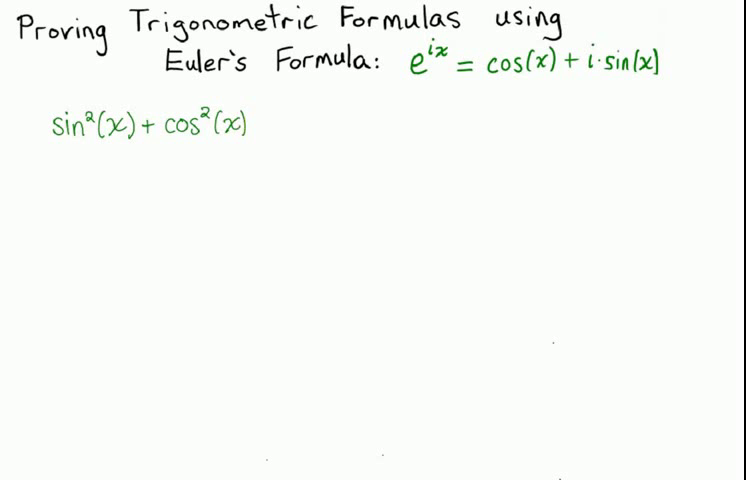 Proving Trigonometric Formulas using
Euler's Formula: e^{ix} = cos(x) + i·sin(x)
sin²(x) + cos²(x)